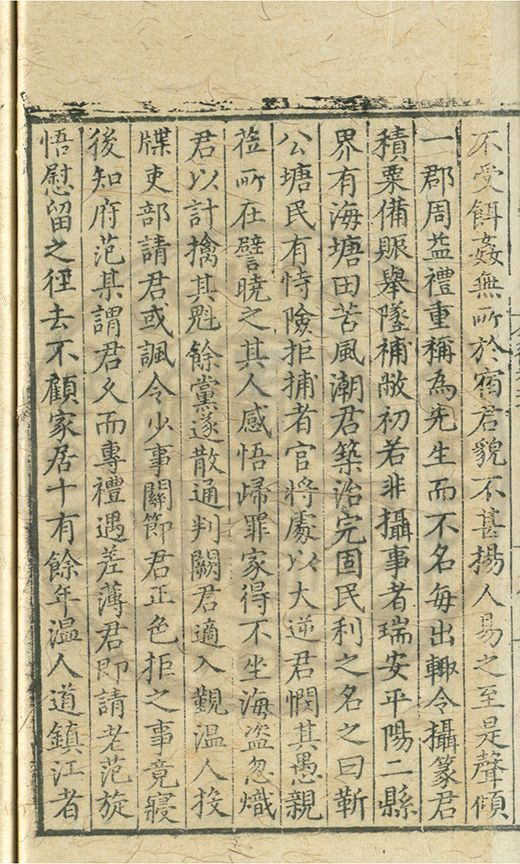 不受餌姦無所於宿君貌不甚揚人易之至是聲傾
一郡周益禮重稱為先生而不名每出輙令攝篆君
積粟備賑舉墜補敝初若非攝事者瑞安平陽二縣
界有海塘田苦風潮君築治完固民利之名之曰靳
公塘民有恃險拒捕者官將處以大逆君憫其愚親
莅所在譬曉之其人感悟歸罪家得不坐海盗忽熾
君以計擒其魁餘黨遂散通判闕君適入覲温人投
牒吏部請君或諷令少事關節君正色拒之事竟寢
後知府范某謂君乆而專禮遇差薄君即請老范旋
悟慰留之徑去不顧家居十有餘年温人道鎮江者